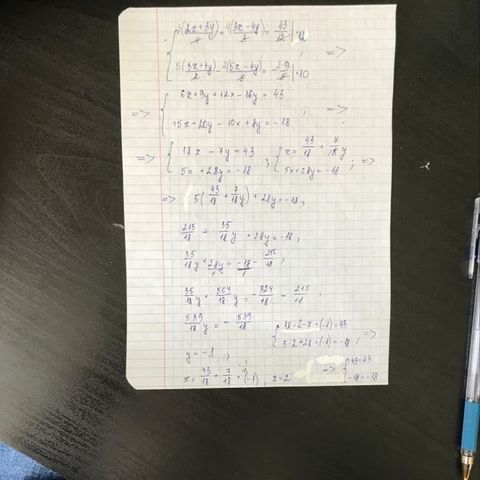 { 3(2x+3y)/4 + 4(3x-4y)/3 = 43/12 |·12 ; =>
5(3x+4y)/2 - 2(5x-4y)/5 = -2·9/5 |·10
=> { 6x+9y+12x-16y = 43 ; =>
15x+20y-10x+8y = -18
=> { 18x - 7y = 43 ; { x = 43/18 + 7/18 y ; =>
5x + 28y = -18 5x+28y = -18
=> 5(43/18 + 7/18 y) + 28y = -18,
215/18 + 35/18 y + 28y = -18,
35/18 y + 28y/1 = -18/1 - 215/18,
35/18 y + 504/18 y = -324/18 - 215/18,
539/18 y = - 539/18
{ 18·2-7·(-1)=43 =>
5·2+28·(-1)=-18,
y = -1 ,
x = 43/18 + 7/18 · (-1) , x=2 => { 43=43
-18=-18